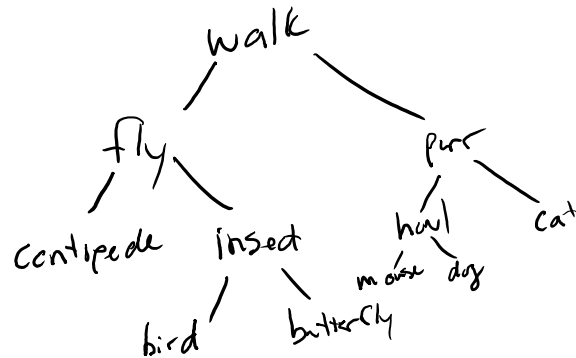 walk
fly
purr
centipede
insect
howl
cat
mouse
dog
bird
butterfly